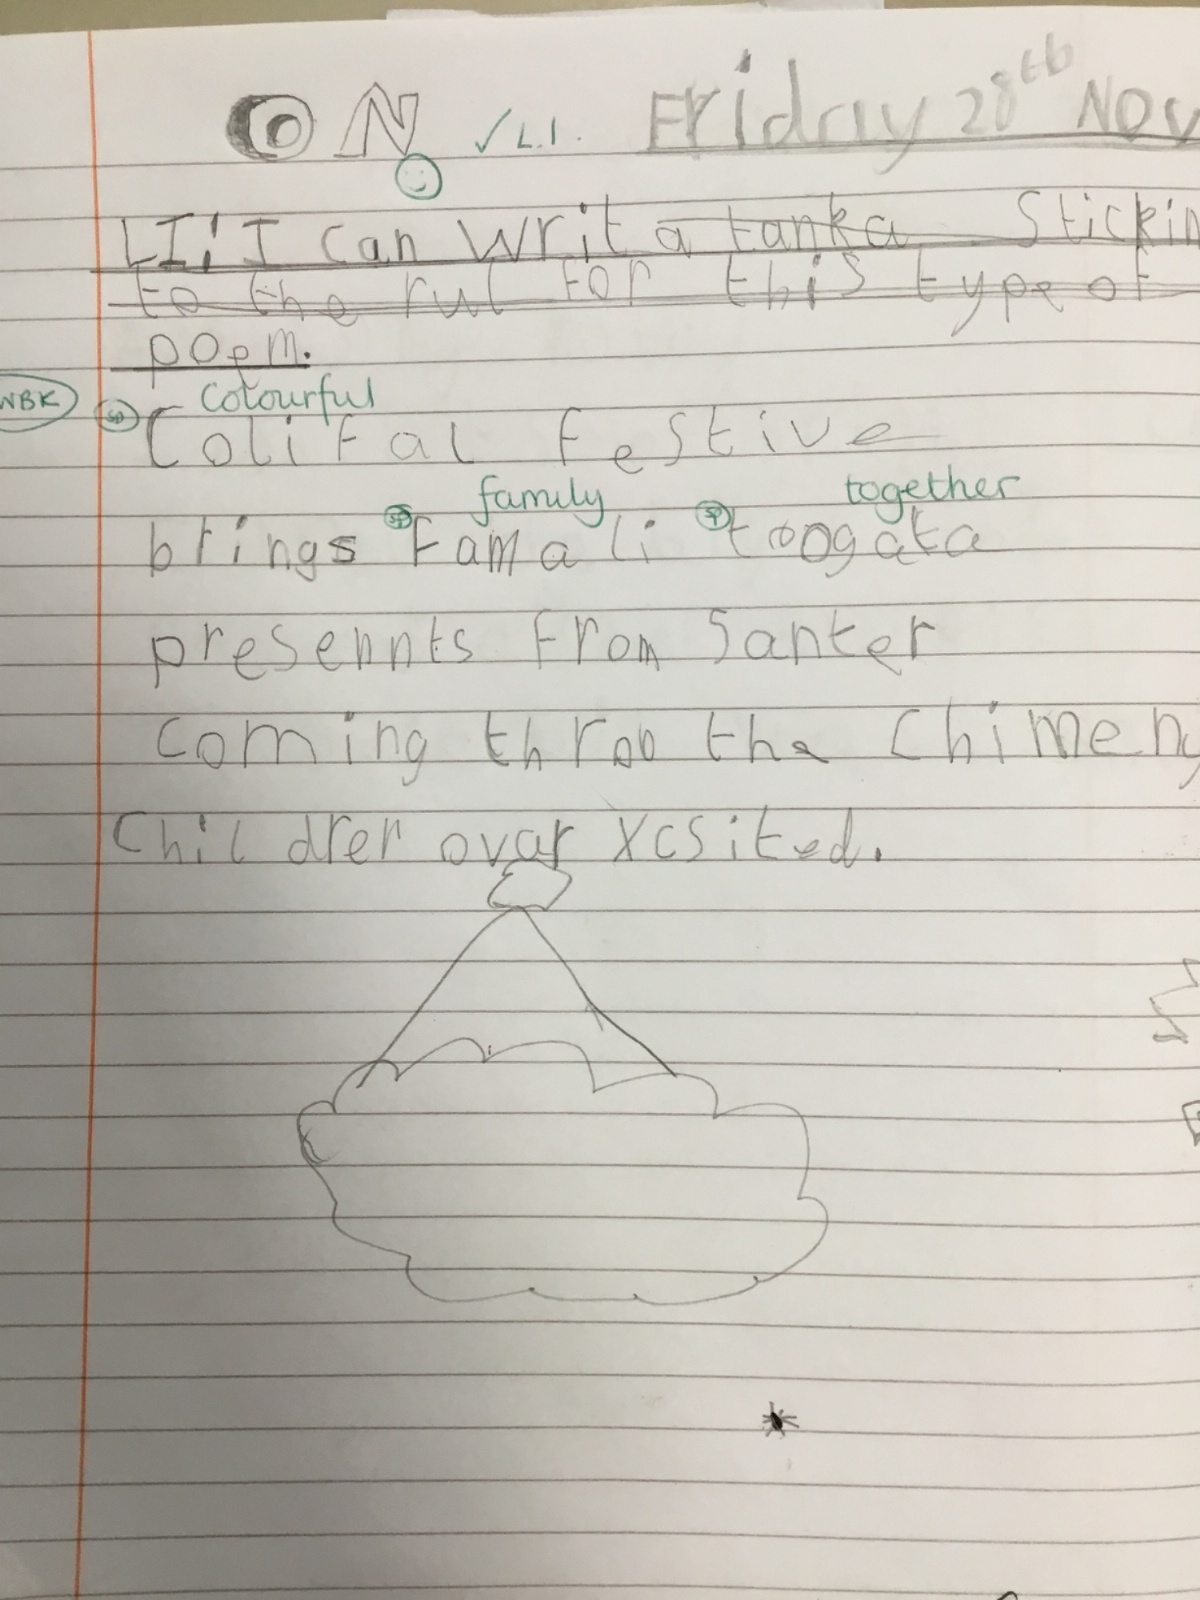 ON ✓ L.I. Friday 28th Nov
LI: I can writ a tanka Stickin
to the rul for this type of
poem.
NBK sp colourful
Colifal festive
sp family sp together
brings famali toogata
presennts from Santer
coming throo the Chimeny
Childrer ovar xcsited.